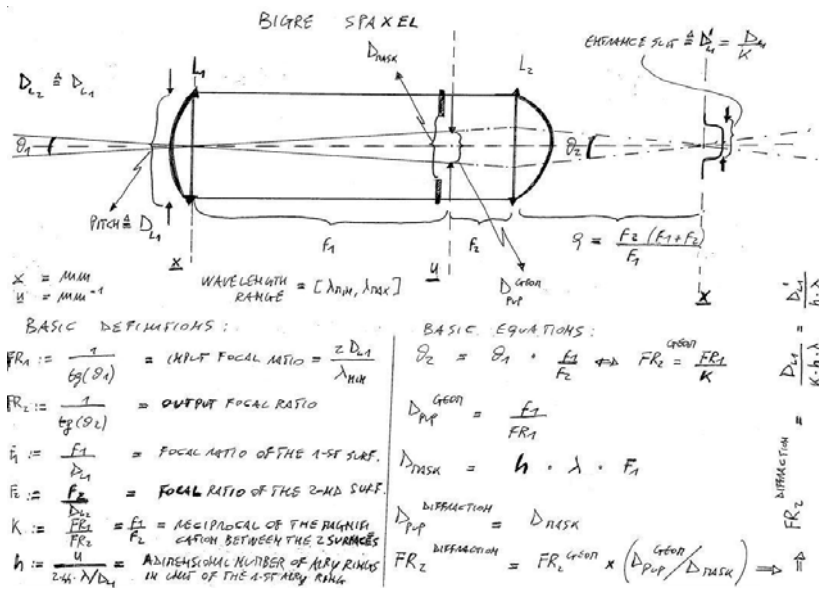 BIGRE SPAXEL
ENTRANCE SLIT ≜ D'L1 = DL1/K
DL2 ≜ DL1
L1
DMASK
L2
θ1
θ2
PITCH ≜ DL1
F1
F2
q = F2 (F1+F2)/F1
x
u
DPUP GEOM
x
x = mm
u = mm⁻¹
WAVELENGTH RANGE = [λMIN, λMAX]
BASIC DEFINITIONS:
FR1 := 1/tg(θ1) = INPUT FOCAL RATIO = 2 DL1/λMIN
FR2 := 1/tg(θ2) = OUTPUT FOCAL RATIO
F1 := f1/DL1 = FOCAL RATIO OF THE 1-ST SURF.
F2 := f2/DL2 = FOCAL RATIO OF THE 2-ND SURF.
K := FR1/FR2 = f1/f2 = RECIPROCAL OF THE MAGNIFI
CATION BETWEEN THE 2 SURFACES
h := u/2.44·λ/DL1 = ADIMENSIONAL NUMBER OF AIRY RINGS
IN UNIT OF THE 1-ST AIRY RING
BASIC EQUATIONS:
θ2 = θ1 · f1/f2 ⇔ FR2 GEOM = FR1/K
DPUP GEOM = f1/FR1
DMASK = h · λ · F1
DPUP DIFFRACTION = DMASK
FR2 DIFFRACTION = FR2 GEOM × (DPUP GEOM / DMASK) ⇒
⇑ FR2 DIFFRACTION = DL1/K·h·λ = D'L1/h·λ